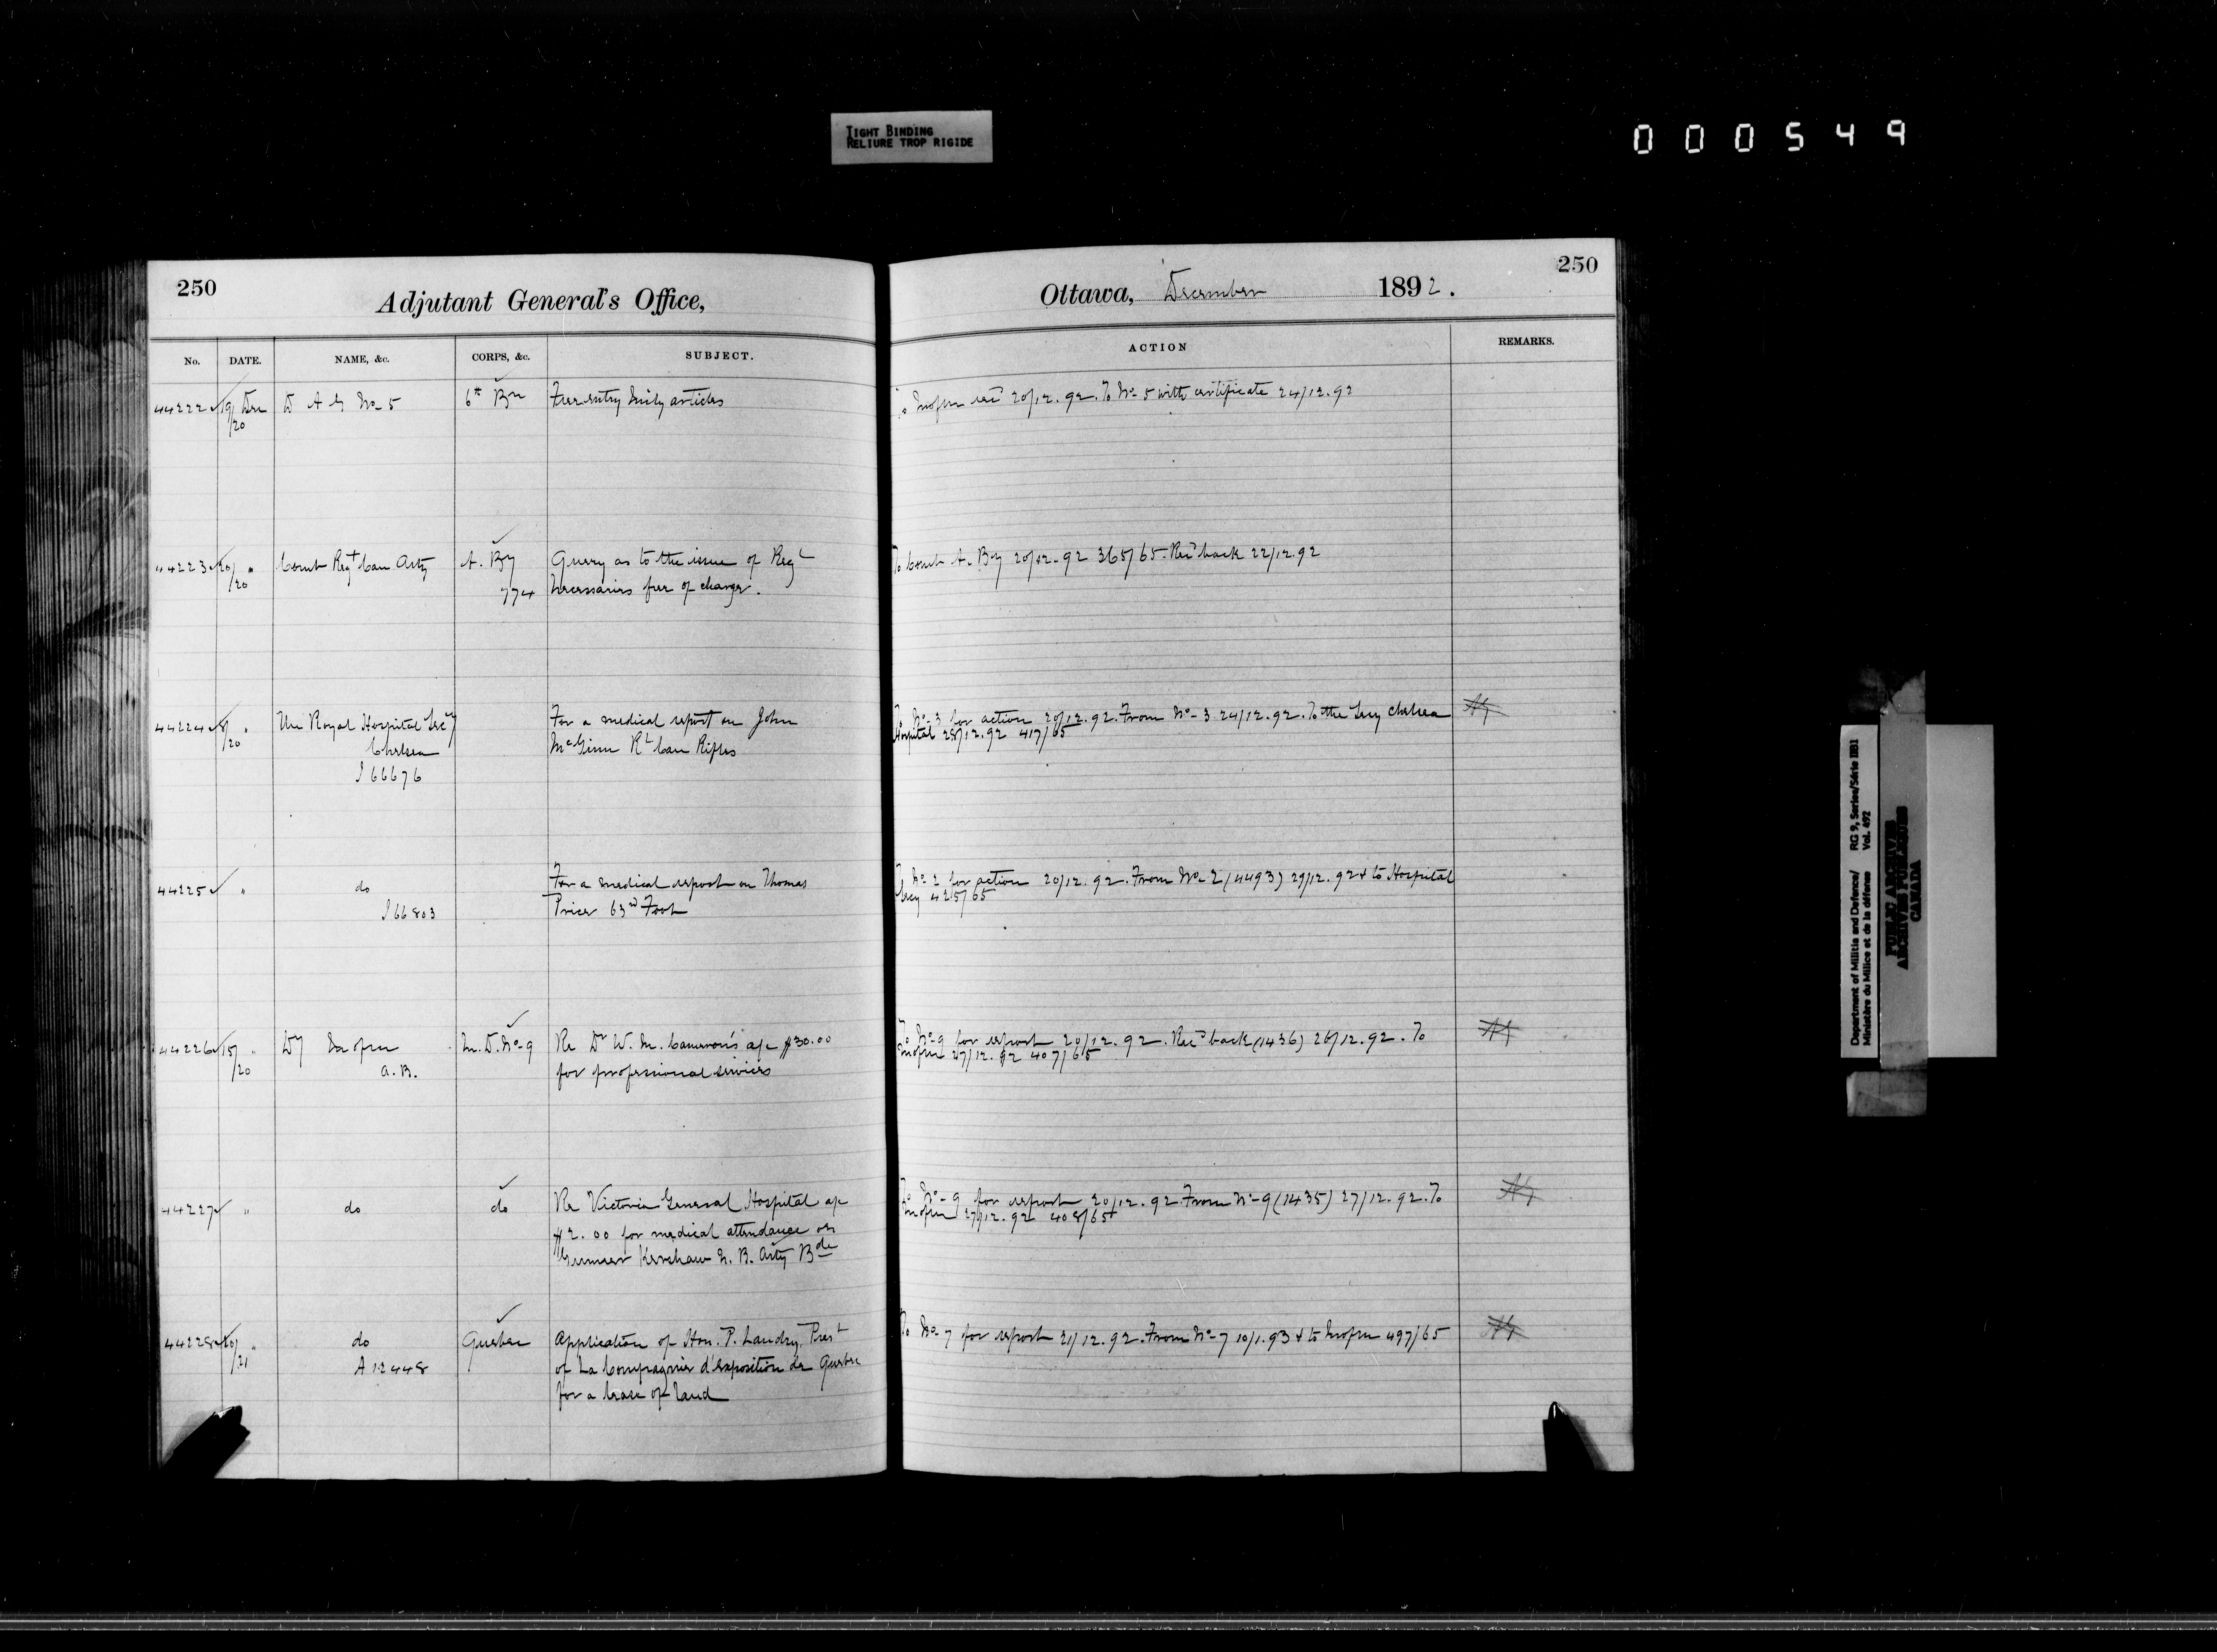 TIGHT BINDING
RELIURE TROP RIGIDE
000549
250
Adjutant General's Office,
No. DATE. NAME, &c. CORPS, &c. SUBJECT.
44222 19/20 Dec D A G No 5 6th Bn Free entry Mily articles
44223 20/20 " Comdt Regt Can Arty A. By Query as to the issue of Regl
774 necessaries free of charge.
44224 8/20 " The Royal Hospital Secy For a medical report on John
Chelsea McGinn Rl Can Rifles
I 66676
44225 " do For a medical report on Thomas
I 66803 Price 63rd Foot
44226 15/20 " Dy M. D. No 9 Re Dr W. M. Cameron's a/c $30.00
A. B. for professional services
44227 " do do Re Victoria General Hospital a/c
$2.00 for medical attendance on
Gunner Kershaw Arty Bde
44228 20/21 " do Quebec Application of Hon. P. Landry, Prest
A 12448 of La Compagnie d'exposition de Quebec
for a lease of land
250
Ottawa, December 1892.
ACTION REMARKS.
20/12.92. To No 5 with certificate 24/12.92
To Comdt A. By 20/12.92 365/65. Recd back 22/12.92
To No 3 for action 20/12.92. From No 3 24/12.92. To the Secy Chelsea
Hospital 28/12.92 417/65
To No 2 for action 20/12.92. From No 2 (4493) 29/12.92 & to Hospital
Secy 425/65
To No 9 for report 20/12.92. Recd back (1436) 26/12.92. To
27/12.92 407/65
To No 9 for report 20/12.92 From No 9 (1435) 27/12.92. To
27/12.92 408/65
To No 7 for report 21/12.92. From No 7 10/1.93 & to 497/65
Department of Militia and Defence/ RG 9, Series/Série IIB1
Ministère du Milice et de la défense Vol. 492
PUBLIC ARCHIVES
ARCHIVES PUBLIQUES
CANADA